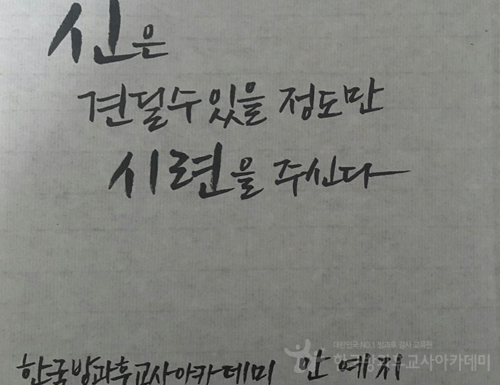 신은
견딜수 있을 정도만
시련을 주신다
대한민국 NO.1 방과후 강사 교육원
한국방과후교사아카데미
한국방과후교사아카데미 안예지